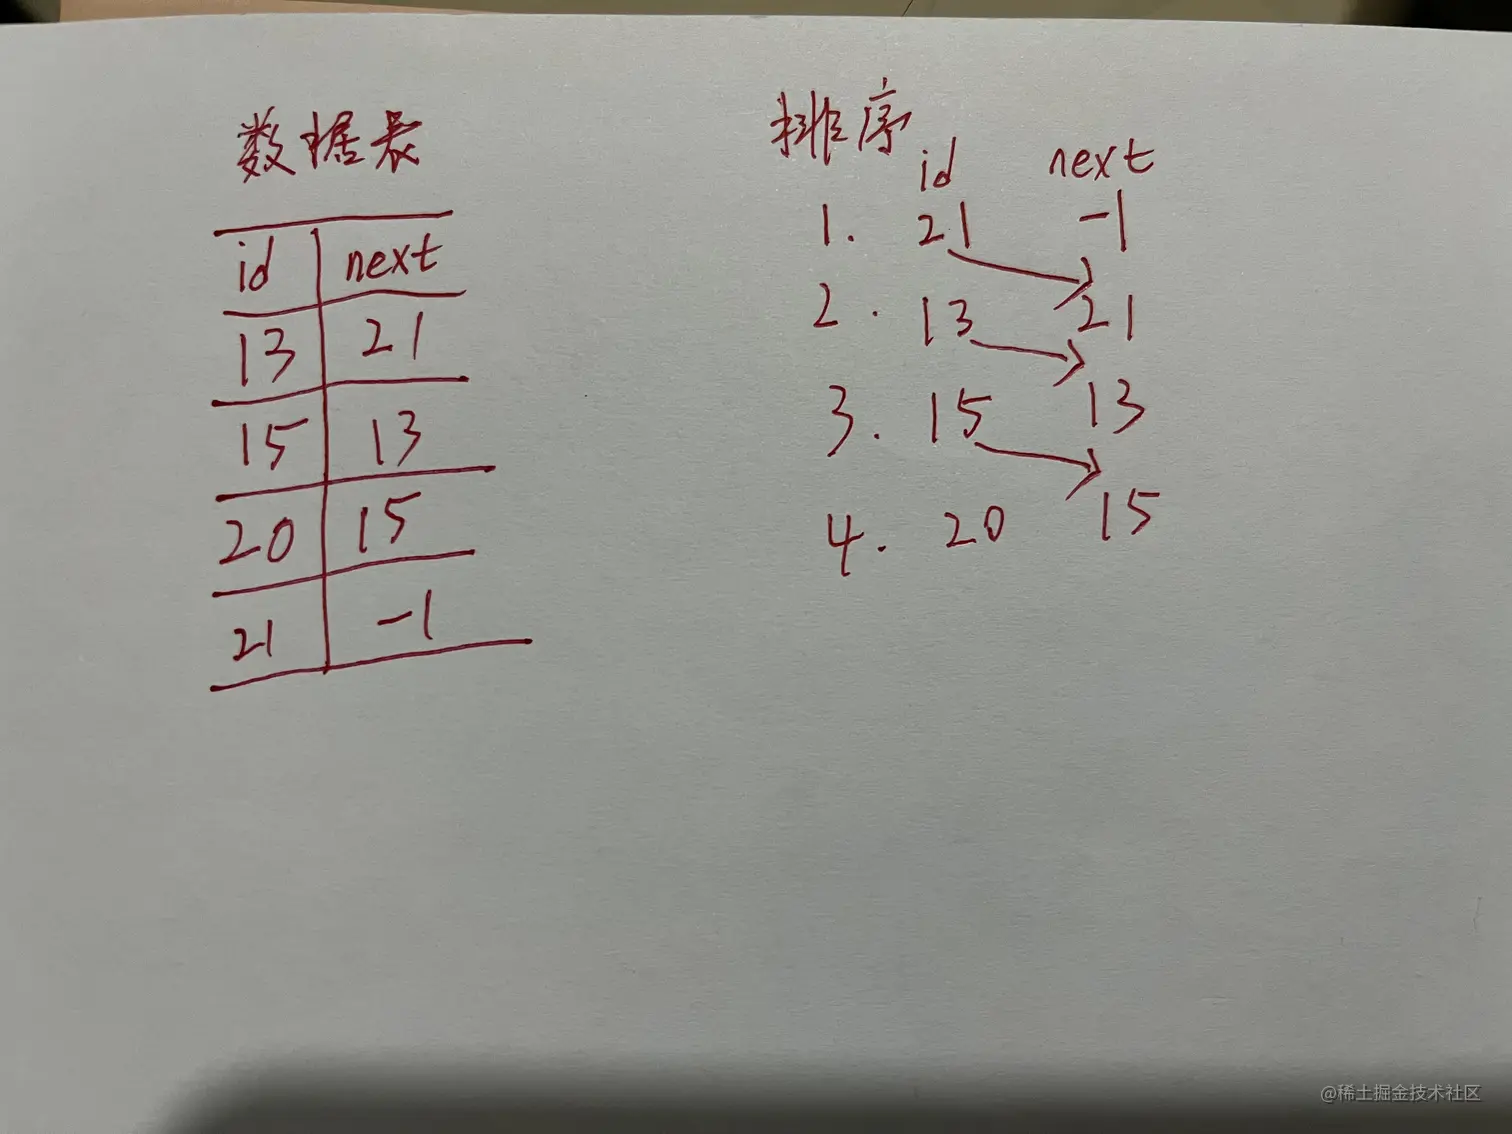 数据表
id next
13 21
15 13
20 15
21 -1
排序
id next
1. 21 -1
2. 13 21
3. 15 13
4. 20 15
@稀土掘金技术社区